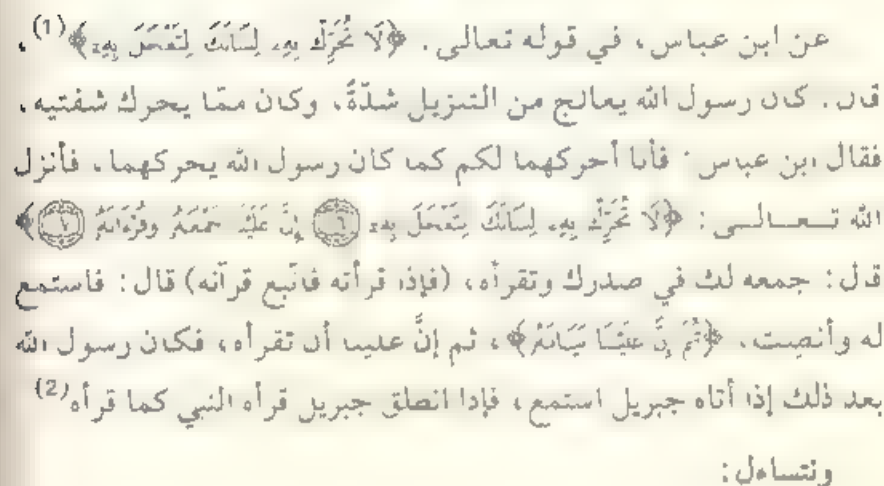 عن ابن عباس، في قوله تعالى. ﴿لَا تُحَرِّكْ بِهِۦ لِسَانَكَ لِتَعْجَلَ بِهِۦ﴾(1)،
قال. كان رسول الله يعالج من التنزيل شدّةً، وكان ممّا يحرك شفتيه،
فقال ابن عباس: فأنا أحركهما لكم كما كان رسول الله يحركهما، فأنزل
الله تعالى: ﴿لَا تُحَرِّكْ بِهِۦ لِسَانَكَ لِتَعْجَلَ بِهِۦ (١٦) إِنَّ عَلَيْنَا جَمْعَهُۥ وَقُرْءَانَهُۥ (١٧)﴾
قال: جمعه لك في صدرك وتقرأه، (فإذا قرأته فاتّبع قرآنه) قال: فاستمع
له وأنصِت. ﴿ثُمَّ إِنَّ عَلَيْنَا بَيَانَهُۥ﴾، ثم إنَّ علينا أن تقرأه، فكان رسول الله
بعد ذلك إذا أتاه جبريل استمع، فإذا انطلق جبريل قرأه النبي كما قرأه(2)
ونتساءل: